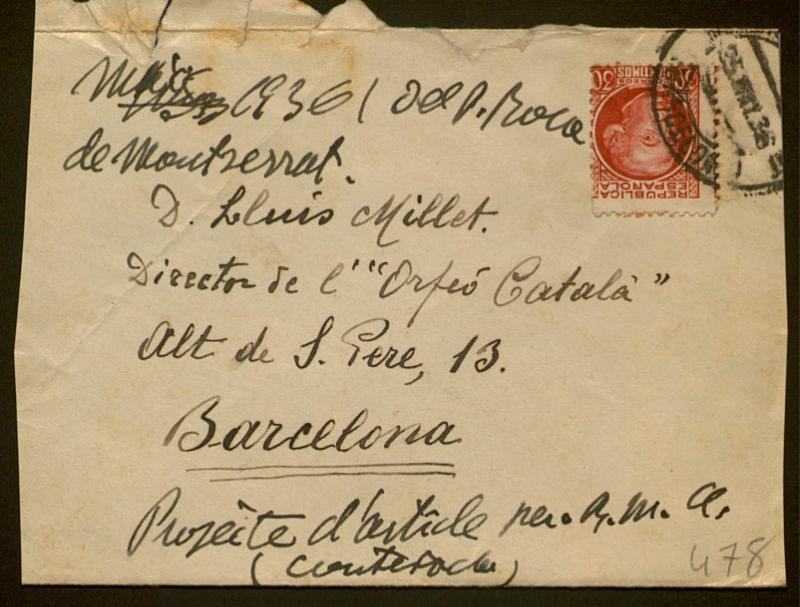 Maig 1936 / Del P. Roca
de Montserrat.
D. Lluís Millet.
Director de l' "Orfeó Català"
Alt de S. Pere, 13.
Barcelona
Projècte d'article per. R. M. C.
(contestada)
478
30
CENTIMOS
REPUBLICA
ESPAÑOLA
36